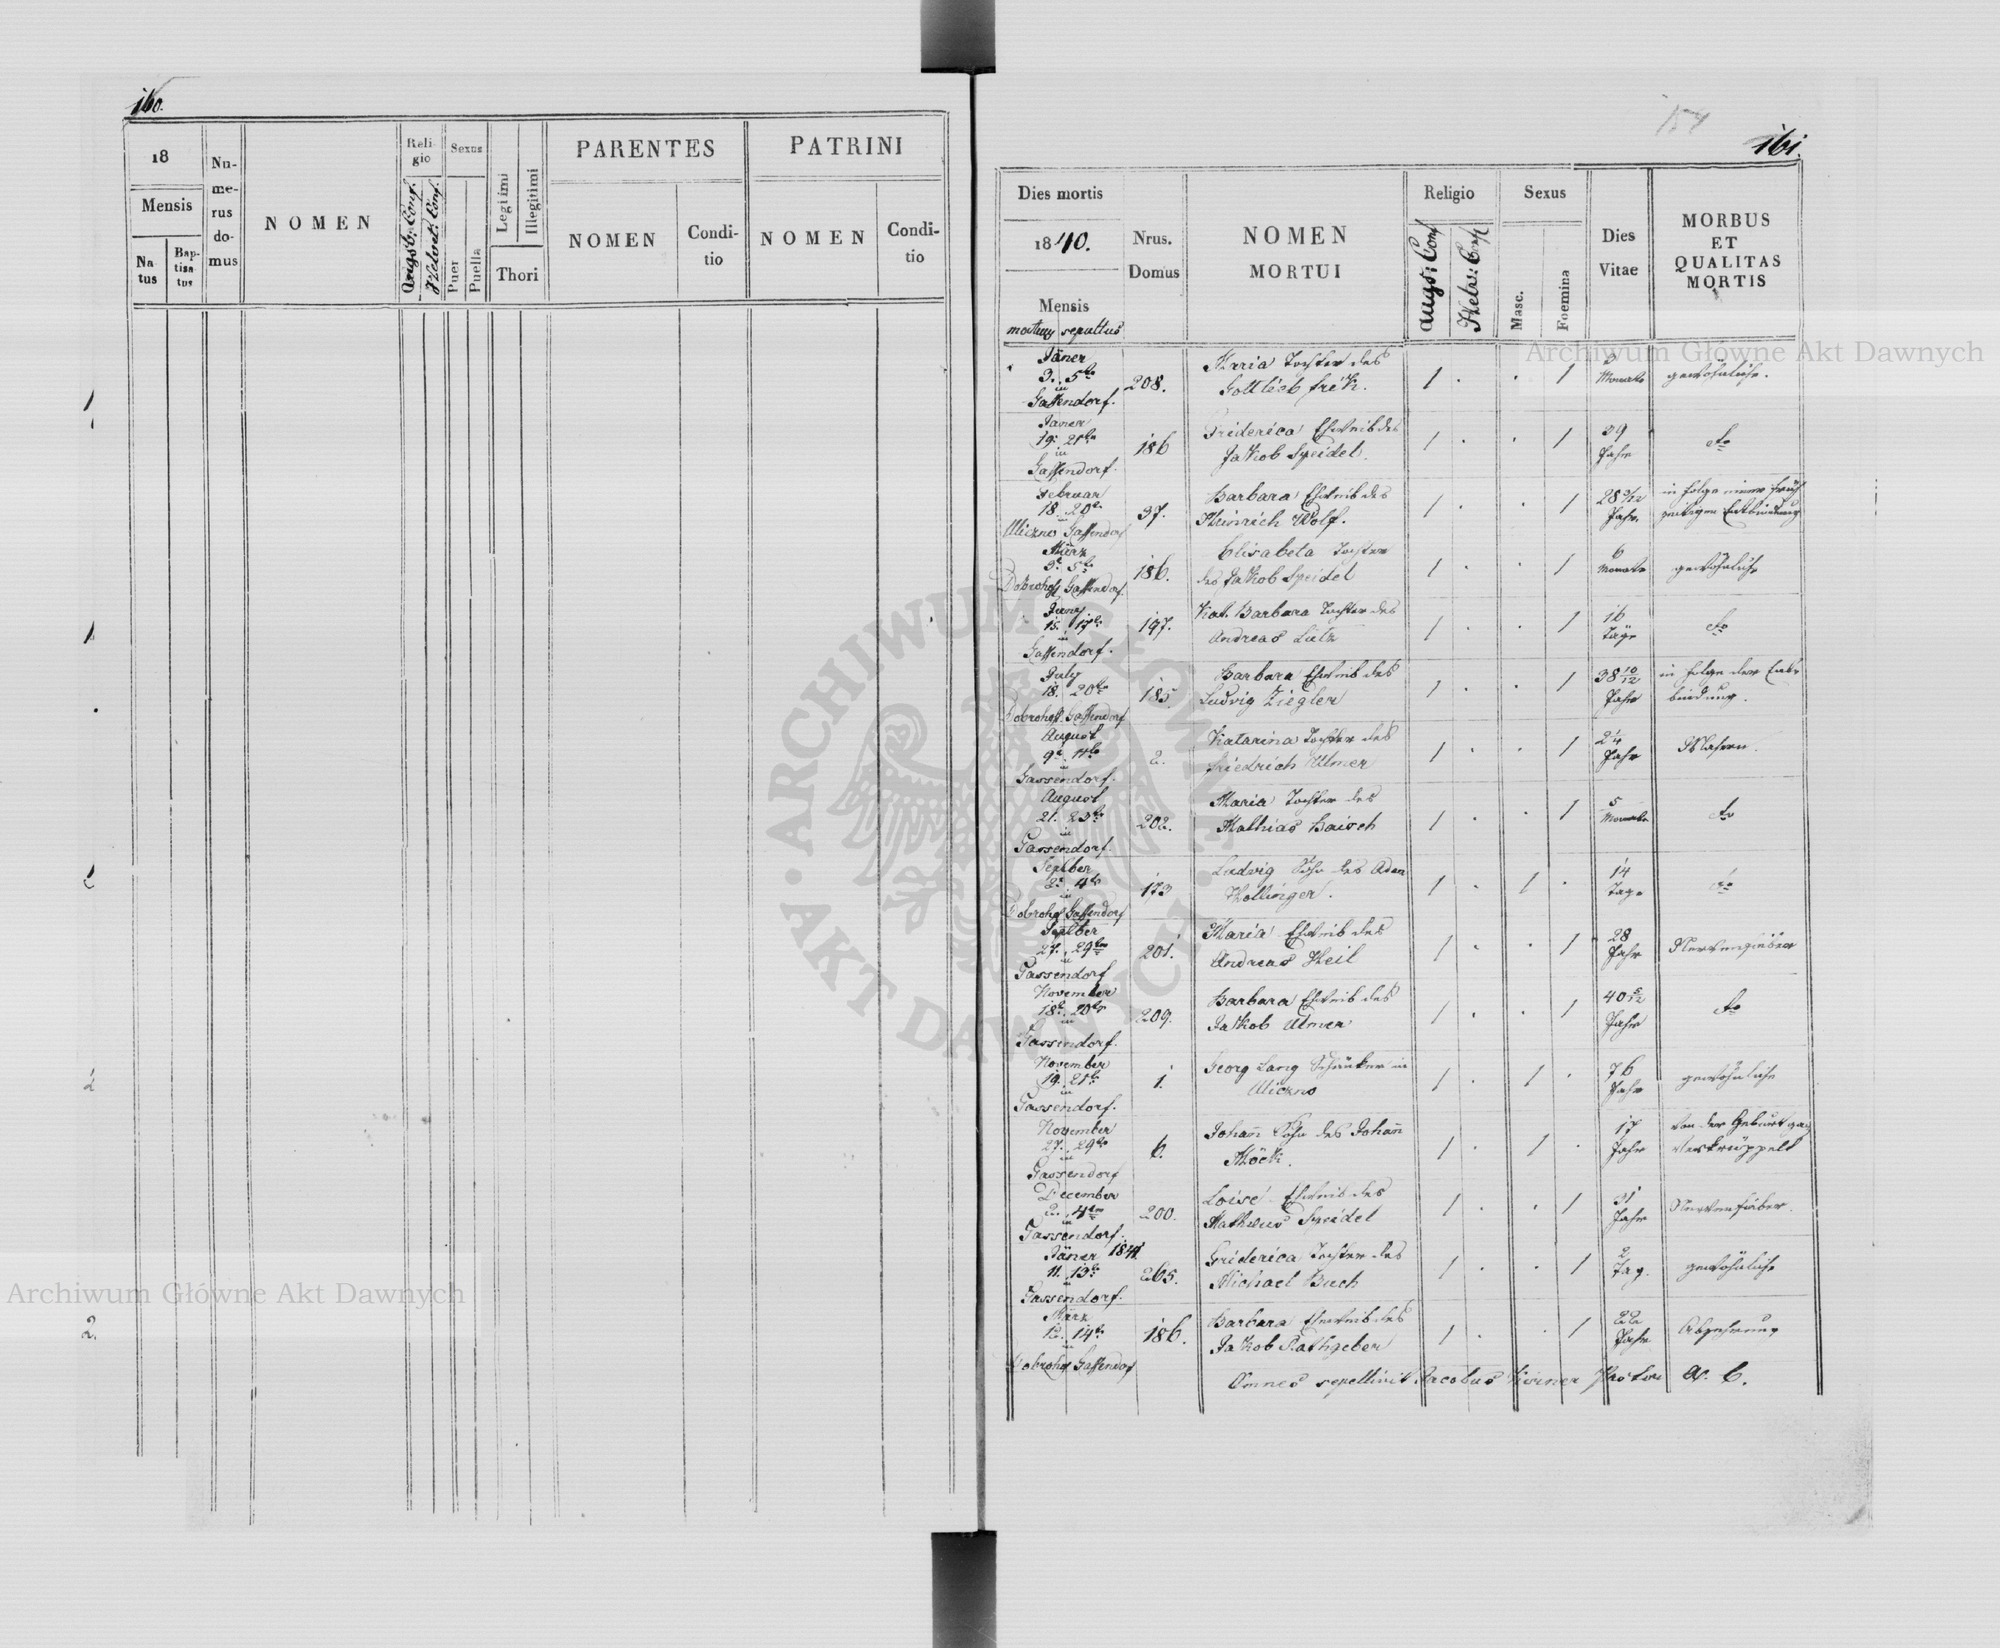 160.
18
Mensis
Na
tus
Bap-
tisa
tus
Nu-
me-
rus
do-
mus
NOMEN
Reli-
gio
Augsb: Conf.
Helvet: Conf.
Sexus
Puer
Puella
Legitimi
Illegitimi
Thori
PARENTES
NOMEN
Condi-
tio
PATRINI
NOMEN
Condi-
tio
154
161.
Dies mortis
1840.
Mensis
mortuus sepultus
Nrus.
Domus
NOMEN
MORTUI
Religio
Augs: Conf
Helv: Conf
Sexus
Masc.
Foemina
Dies
Vitae
MORBUS
ET
QUALITAS
MORTIS
Jäner
3. 5te
in
Gassendorf.
208.
Maria Tochter des
Gottlieb Frik.
1 . . 1
Monate
gewöhnliche.
Janer
19. 21te
in
Gassendorf.
186
Friderica Eheweib des
Jakob Speidel.
1 . . 1
39
Jahr
do
Februar
18. 20te
in
Uliczno Gassendorf
37.
Barbara Eheweib des
Heinrich Wolf.
1 . . 1
28 3/12
Jahr.
in folge einer früh
zeitigen Entbindung
März
3t 5te
Dobrohost Gassendorf
186.
Elisabeta Tochter
des Jakob Speidel
1 . . 1
6
Monate
gewöhnliche
Juny
15. 17te
in
Gassendorf.
197.
Kat. Barbara Tochter des
Andreas Lutz
1 . . 1
16
Tage
do
July
18. 20te
Dobrohost. Gassendorf
185
Barbara Eheweib des
Ludvig Ziegler
1 . . 1
38 10/12
Jahr
in folge der Ent-
bindung.
August
9t 11te
in
Gassendorf.
2.
Katarina Tochter des
Friedrich Ulmer
1 . . 1
2 1/4
Jahr
Masern.
August
21. 23te
in
Gassendorf.
202.
Maria Tochter des
Mathias Haisch
1 . . 1
5
Monate
do
Septber
2t 4te
in
Dobrohost Gassendorf
173
Ludvig Sohn des Adam
Hollinger.
1 . 1 .
14
Tage
do
Septber
27. 29ten
in
Gassendorf
201.
Maria Eheweib des
Andreas Heil
1 . . 1
28
Jahr
Nervenfieber
November
18t. 20te
in
Gassendorf.
209.
Barbara Eheweib des
Jakob Ulmer
1 . . 1
40 5/12
Jahr
do
November
19. 21te
in
Gassendorf.
1.
Georg Lang Schänker in
Uliczno
1 . 1 .
76
Jahr
gewöhnliche
November
27. 29te
in
Gassendorf
6.
Johann Sohn des Johann
Möck.
1 . 1 .
17
Jahr
von der Geburt ganz
verkrüppelt
December
2. 4ten
in
Gassendorf.
200.
Loise Eheweib des
Matheus Speidel
1 . . 1
31
Jahr
Nervenfieber.
Jäner 1841
11. 13te
in
Gassendorf.
265.
Friderica Tochter des
Michael Buch
1 . . 1
2
Tag.
gewöhnliche
März
12. 14te
in
Dobrohost Gassendorf
186.
Barbara Eheweib des
Jakob Rathgeber
1 . . 1
22
Jahr
Abzehrung
Omnes sepellivit Jacobus Pastor A. C.
Archiwum Główne Akt Dawnych
Archiwum Główne Akt Dawnych
ARCHIWUM GŁÓWNE AKT DAWNYCH